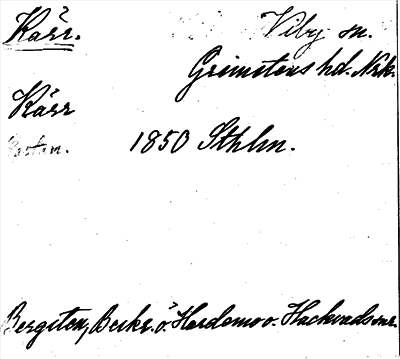 Kärr. Viby sn.
Grimstens hd. Nrk.
Kärr
1850 Sthlm.
Bergsten, Beskr. ö. Hardemo o. Hackvads snr.